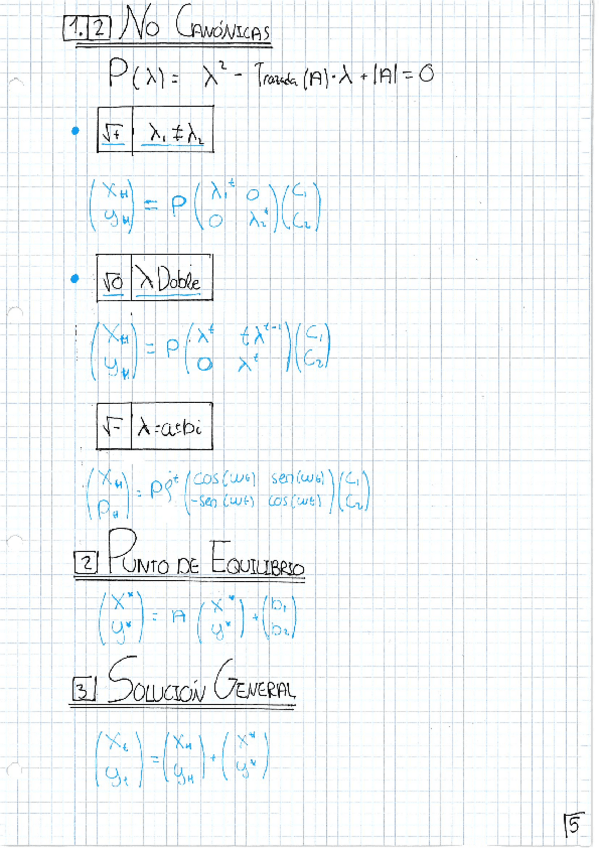 1.2 No Canónicas
P(λ) = λ² - Trazada (A)·λ + |A| = 0
• √+ | λ₁ ≠ λ₂
(x_H y_H) = P (λ₁ᵗ 0 0 λ₂ᵗ) (C₁ C₂)
• √0 | λ Doble
(x_H y_H) = P (λᵗ tλᵗ⁻¹ 0 λᵗ) (C₁ C₂)
√- | λ = a±bi
(x_H P_H) = Pρᵗ (cos(ωt) sen(ωt) -sen(ωt) cos(ωt)) (C₁ C₂)
2 Punto de Equilibrio
(x* y*) = A (x* y*) + (b₁ b₂)
3 Solución General
(x_t y_t) = (x_H y_H) + (x* y*)
5